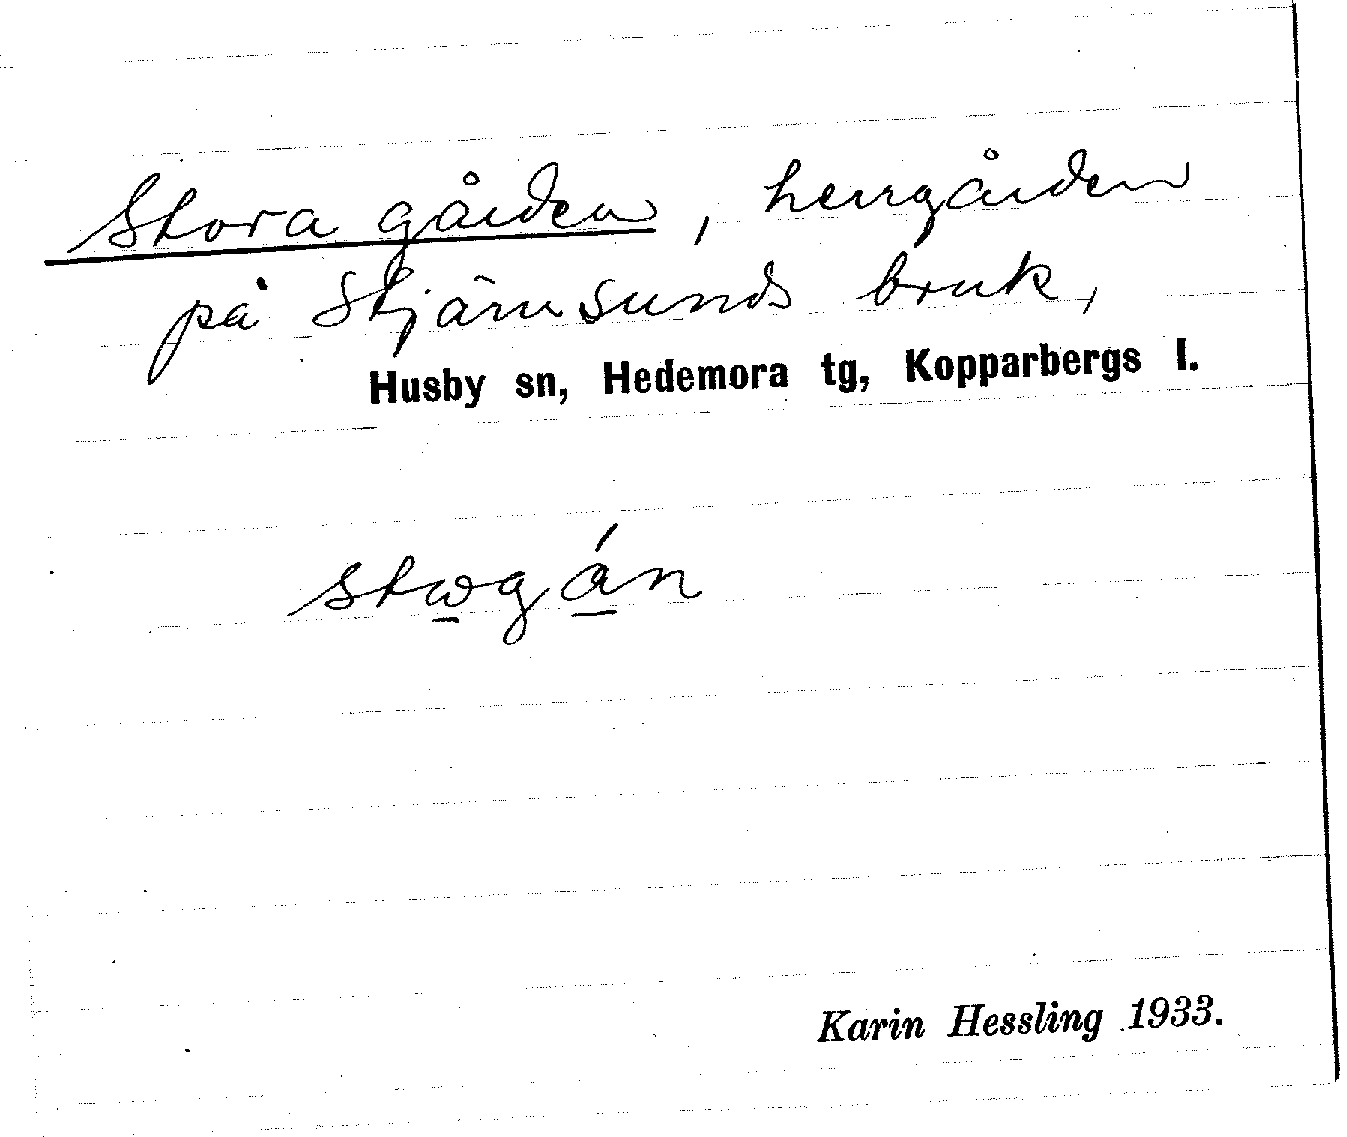 Stora gården, herrgården
på Stjärnsunds bruk,
Husby sn, Hedemora tg, Kopparbergs l.
stω̱gá̱n
Karin Hessling 1933.